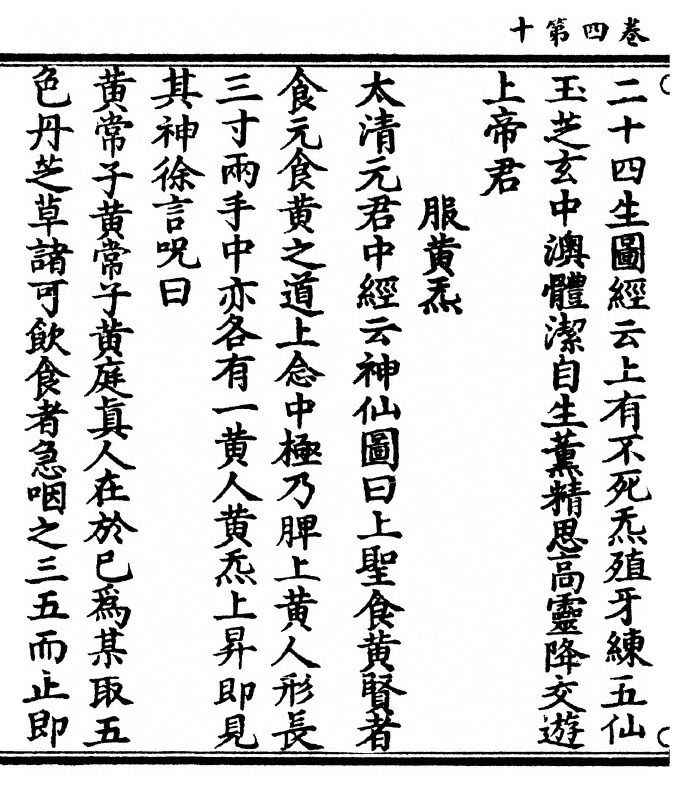 十第四卷
二十四生圖經云上有不死炁殖牙練五仙
玉芝玄中澳體潔自生薰精思高靈降交遊
上帝君
服黄炁
太清元君中經云神仙圖曰上聖食黄賢者
食元食黄之道上念中極乃脾上黄人形長
三寸兩手中亦各有一黄人黄炁上昇即見
其神徐言呪曰
黄常子黄常子黄庭真人在於己爲某取五
色丹芝草諸可飲食者急咽之三五而止即